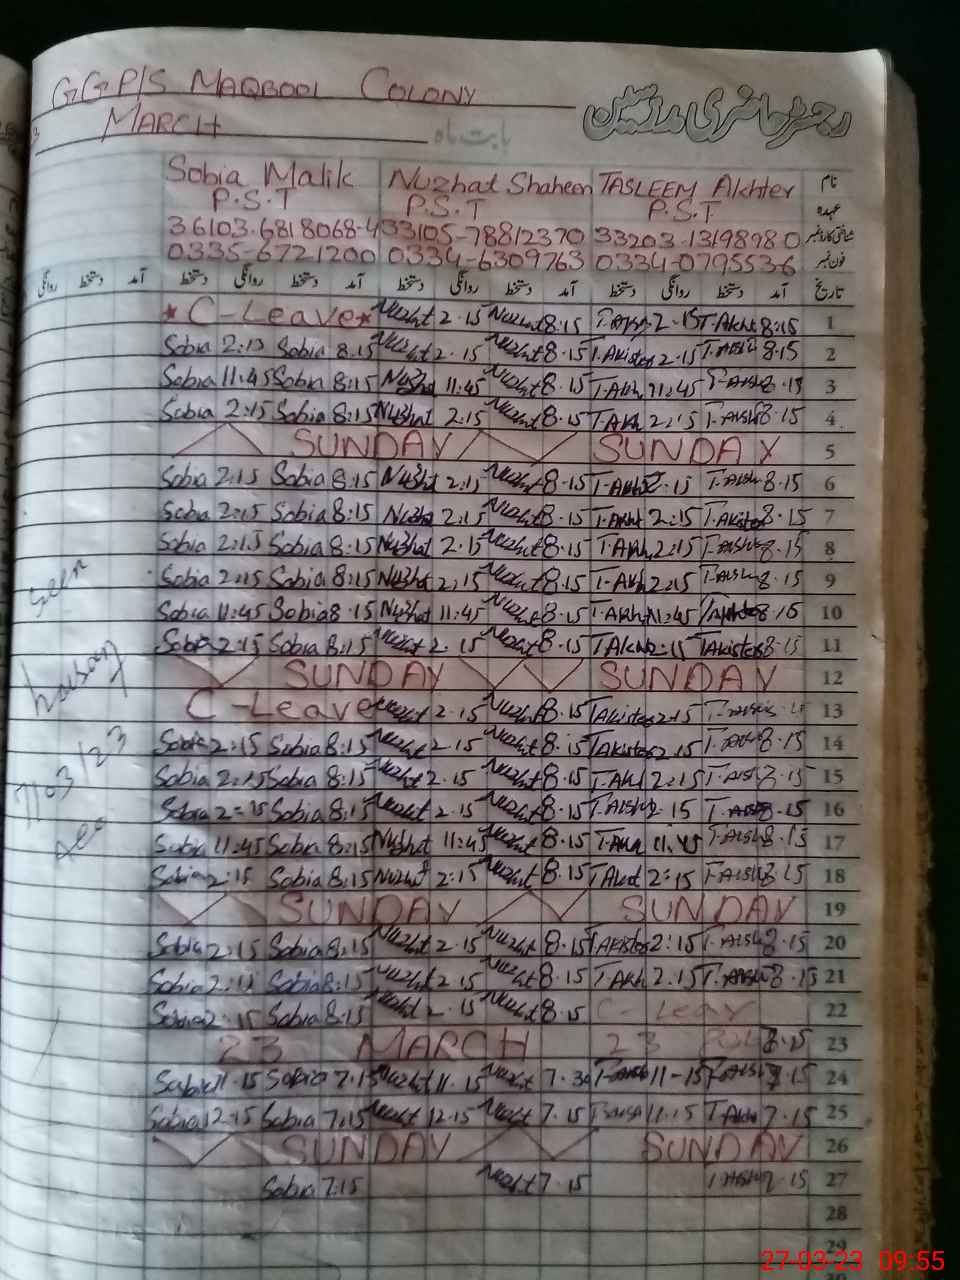 GGP/S MAQBOOL COLONY
رجسٹر حاضری مدرسین
MARCH
بابت ماہ
Sobia Malik Nuzhat Shaheen TASLEEM Akhter نام
P.S.T P.S.T P.S.T عہدہ
36103-6818068-4 33105-78812370 33203-1319898-0 شناختی کارڈ نمبر
0335-6721200 0334-6309763 0334-0795536 فون نمبر
روانگی دستخط آمد دستخط روانگی دستخط آمد دستخط روانگی دستخط آمد دستخط روانگی دستخط آمد تاریخ
* C-Leave * Nuzhat 2.15 Nuzhat 8:15 2-15 T.Akht 8:15 1
Sobia 2:15 Sobia 8.15 Nuzhat 2.15 Nuzhat 8.15 T.Akhter 2.15 8.15 2
Sobia 11:45 Sobia 8:15 Nuzhat 11:45 Nuzhat 8.15 T.Akh 11:45 8.15 3
Sobia 2:15 Sobia 8:15 Nuzhat 2:15 Nuzhat 8.15 T.Akh 2:15 8.15 4
SUNDAY SUNDAY 5
Sobia 2:15 Sobia 8:15 Nuzhat 2:15 Nuzhat 8.15 T-Akh 2.15 8.15 6
Sobia 2:15 Sobia 8:15 Nuzhat 2:15 Nuzhat 8.15 T.Akht 2:15 T.Akhter 8.15 7
Sobia 2:15 Sobia 8:15 Nuzhat 2.15 Nuzhat 8.15 T-Akh 2:15 8.15 8
seen
Sobia 2:15 Sobia 8:15 Nuzhat 2:15 Nuzhat 8.15 T-Akh 2:15 8.15 9
Sobia 11:45 Sobia 8:15 Nuzhat 11:45 Nuzhat 8.15 T.Akh 11:45 8.15 10
Sobia 2:15 Sobia 8:15 Nuzhat 2.15 Nuzhat 8.15 TAkh 2:15 TAkhter 8.15 11
SUNDAY SUNDAY 12
C-Leave Nuzhat 2.15 Nuzhat 8.15 TAkhter 2:15 13
Sobia 2:15 Sobia 8:15 Nuzhat 2.15 Nuzhat 8.15 TAkhter 2.15 8.15 14
Sobia 2:15 Sobia 8:15 Nuzhat 2.15 Nuzhat 8.15 T.Akh 2:15 8.15 15
Sobia 2:15 Sobia 8:15 Nuzhat 2.15 Nuzhat 8.15 2.15 8.15 16
Sobia 11:45 Sobia 8:15 Nuzhat 11:45 Nuzhat 8.15 T.Akh 11.45 8.15 17
Sobia 2:15 Sobia 8:15 Nuzhat 2:15 Nuzhat 8.15 TAkht 2:15 8.15 18
SUNDAY SUNDAY 19
Sobia 2:15 Sobia 8:15 Nuzhat 2.15 Nuzhat 8.15 TAkhter 2:15 8.15 20
Sobia 2:15 Sobia 8:15 Nuzhat 2.15 Nuzhat 8.15 TAkh 2.15 8.15 21
Sobia 2:15 Sobia 8:15 Nuzhat 2.15 Nuzhat 8.15 C-Leav 22
23 MARCH 23 23
Sobia 11.15 Sobia 7.15 Nuzhat 11.15 Nuzhat 7.30 11-15 7.15 24
Sobia 12.15 Sobia 7:15 Nuzhat 12.15 Nuzhat 7.15 11.15 T.Akh 7.15 25
SUNDAY SUNDAY 26
Sobia 7:15 Nuzhat 7.15 7.15 27
28
29
27-03-23 09:55